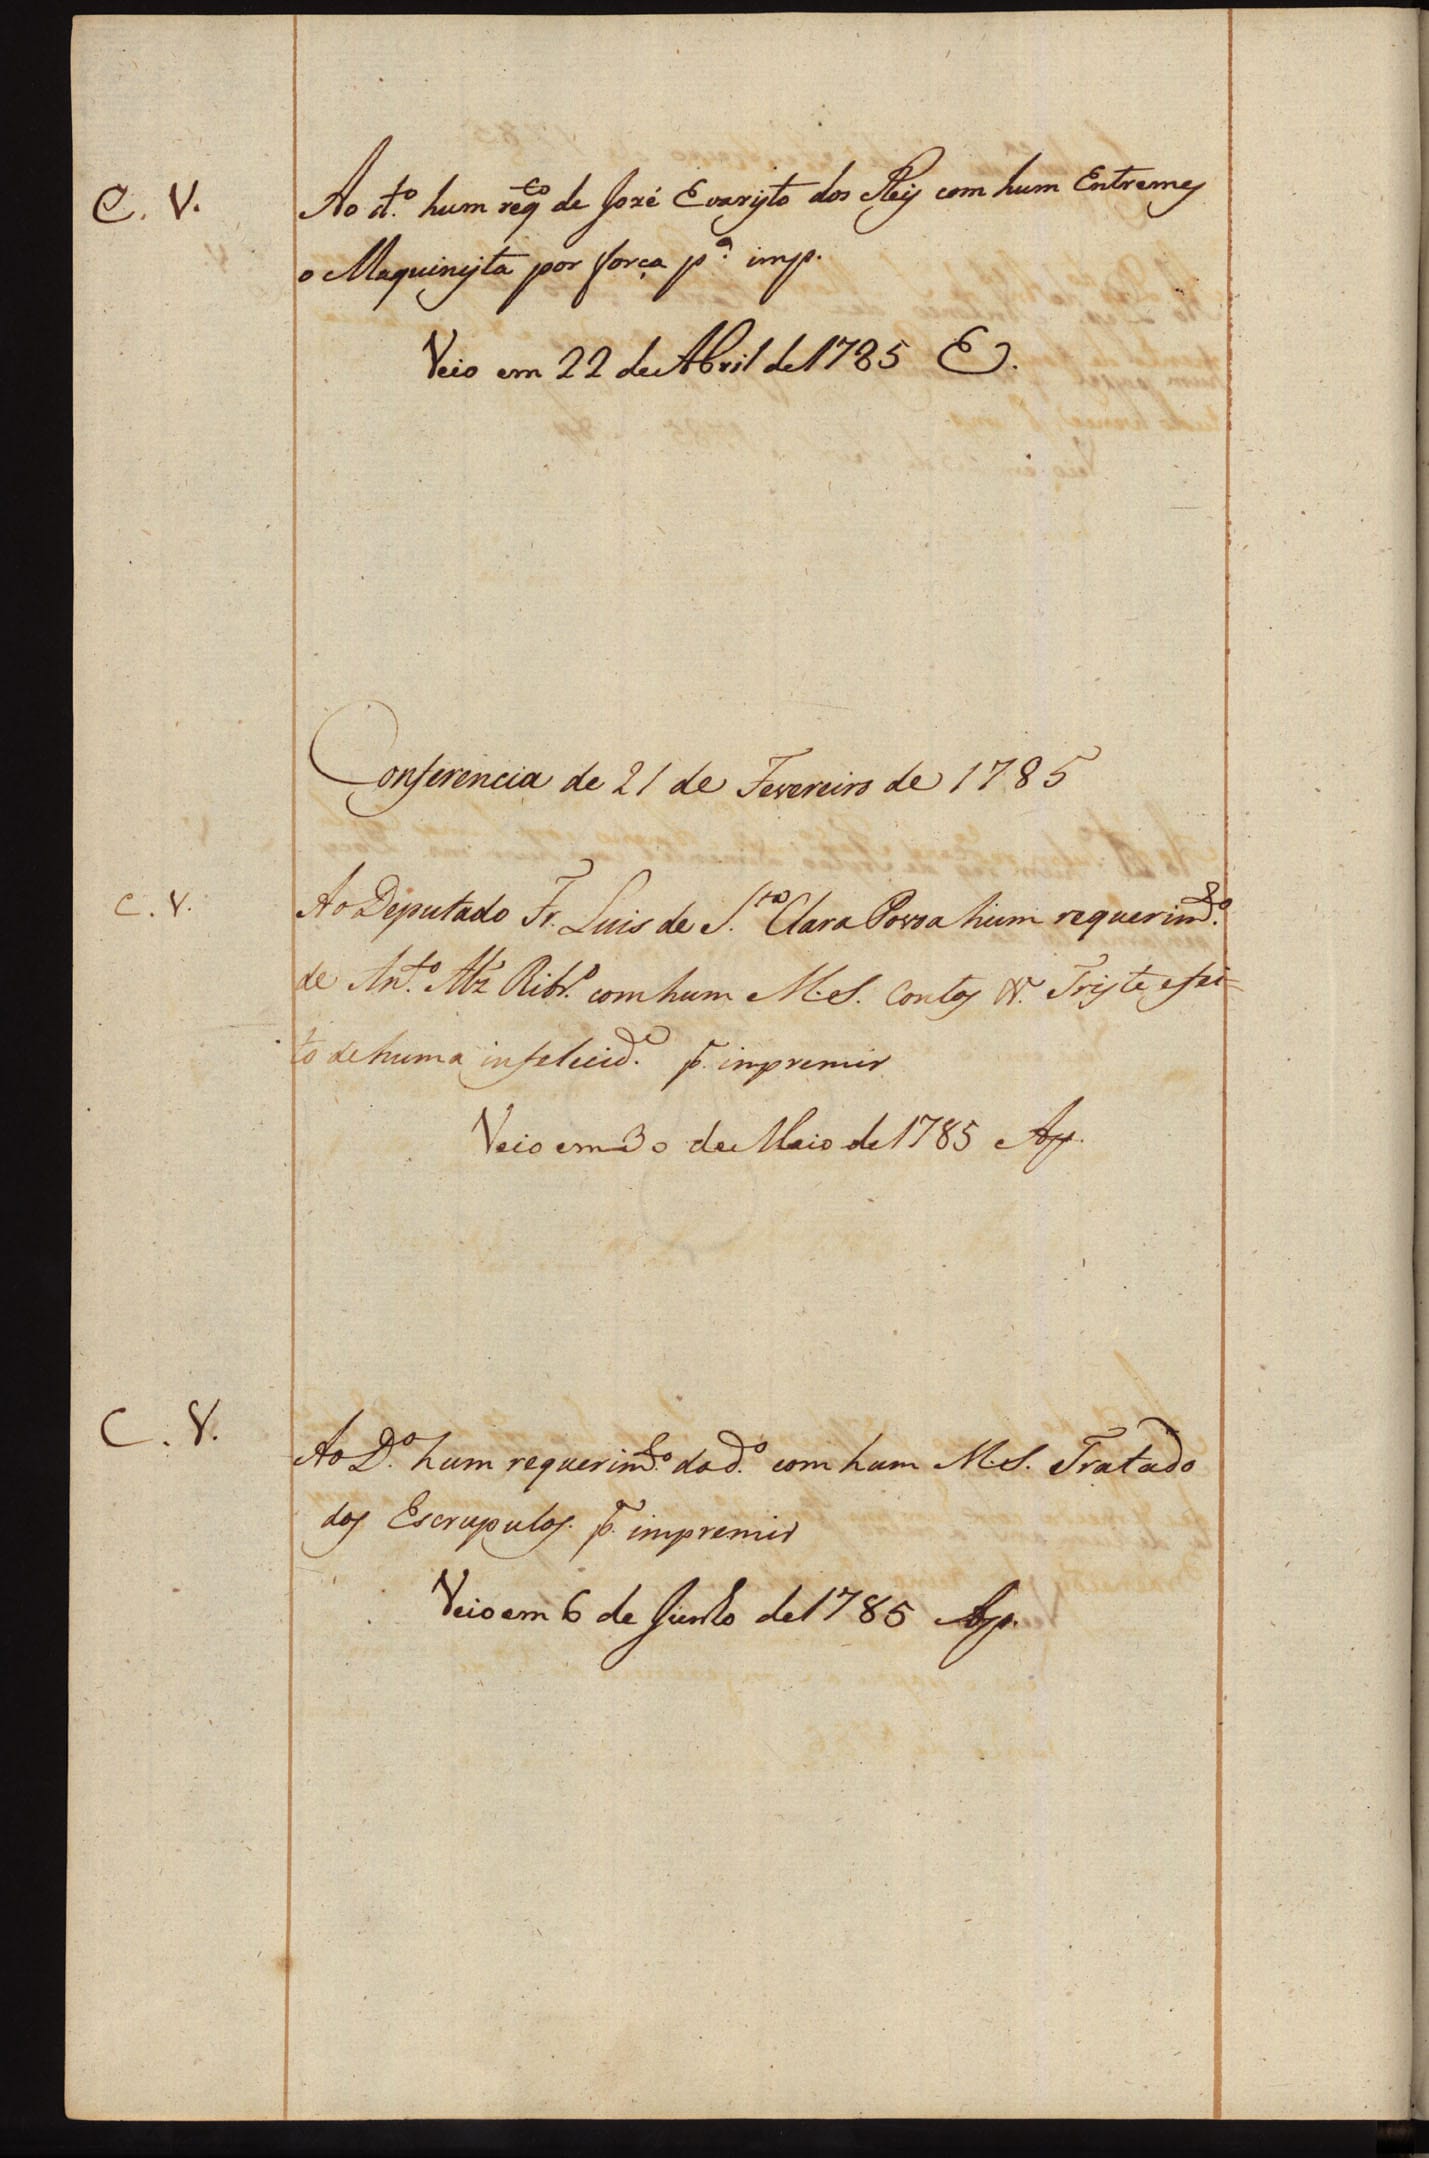 C. V.
Ao d.º hum reqco de Jozé Evaristo dos Reis com hum Entremes
o Maquinista por força pª. imp.
Veio em 22 de Abril de 1785 E.
Conferencia de 21 de Fevereiro de 1785
C. V.
Ao Deputado Fr. Luis de S.ta Clara Povoa hum requerim.to
de Ant.º Alz Ribr.º com hum M.S. Contos N. Triste efei=
to de huma infelicid.e p.ª impremir
Veio em 30 de Maio de 1785
C. V.
Ao D.º hum requerim.to do d.º com hum M.S. Tratado
dos Escrupulos. p.ª impremir
Veio em 6 de Junho de 1785